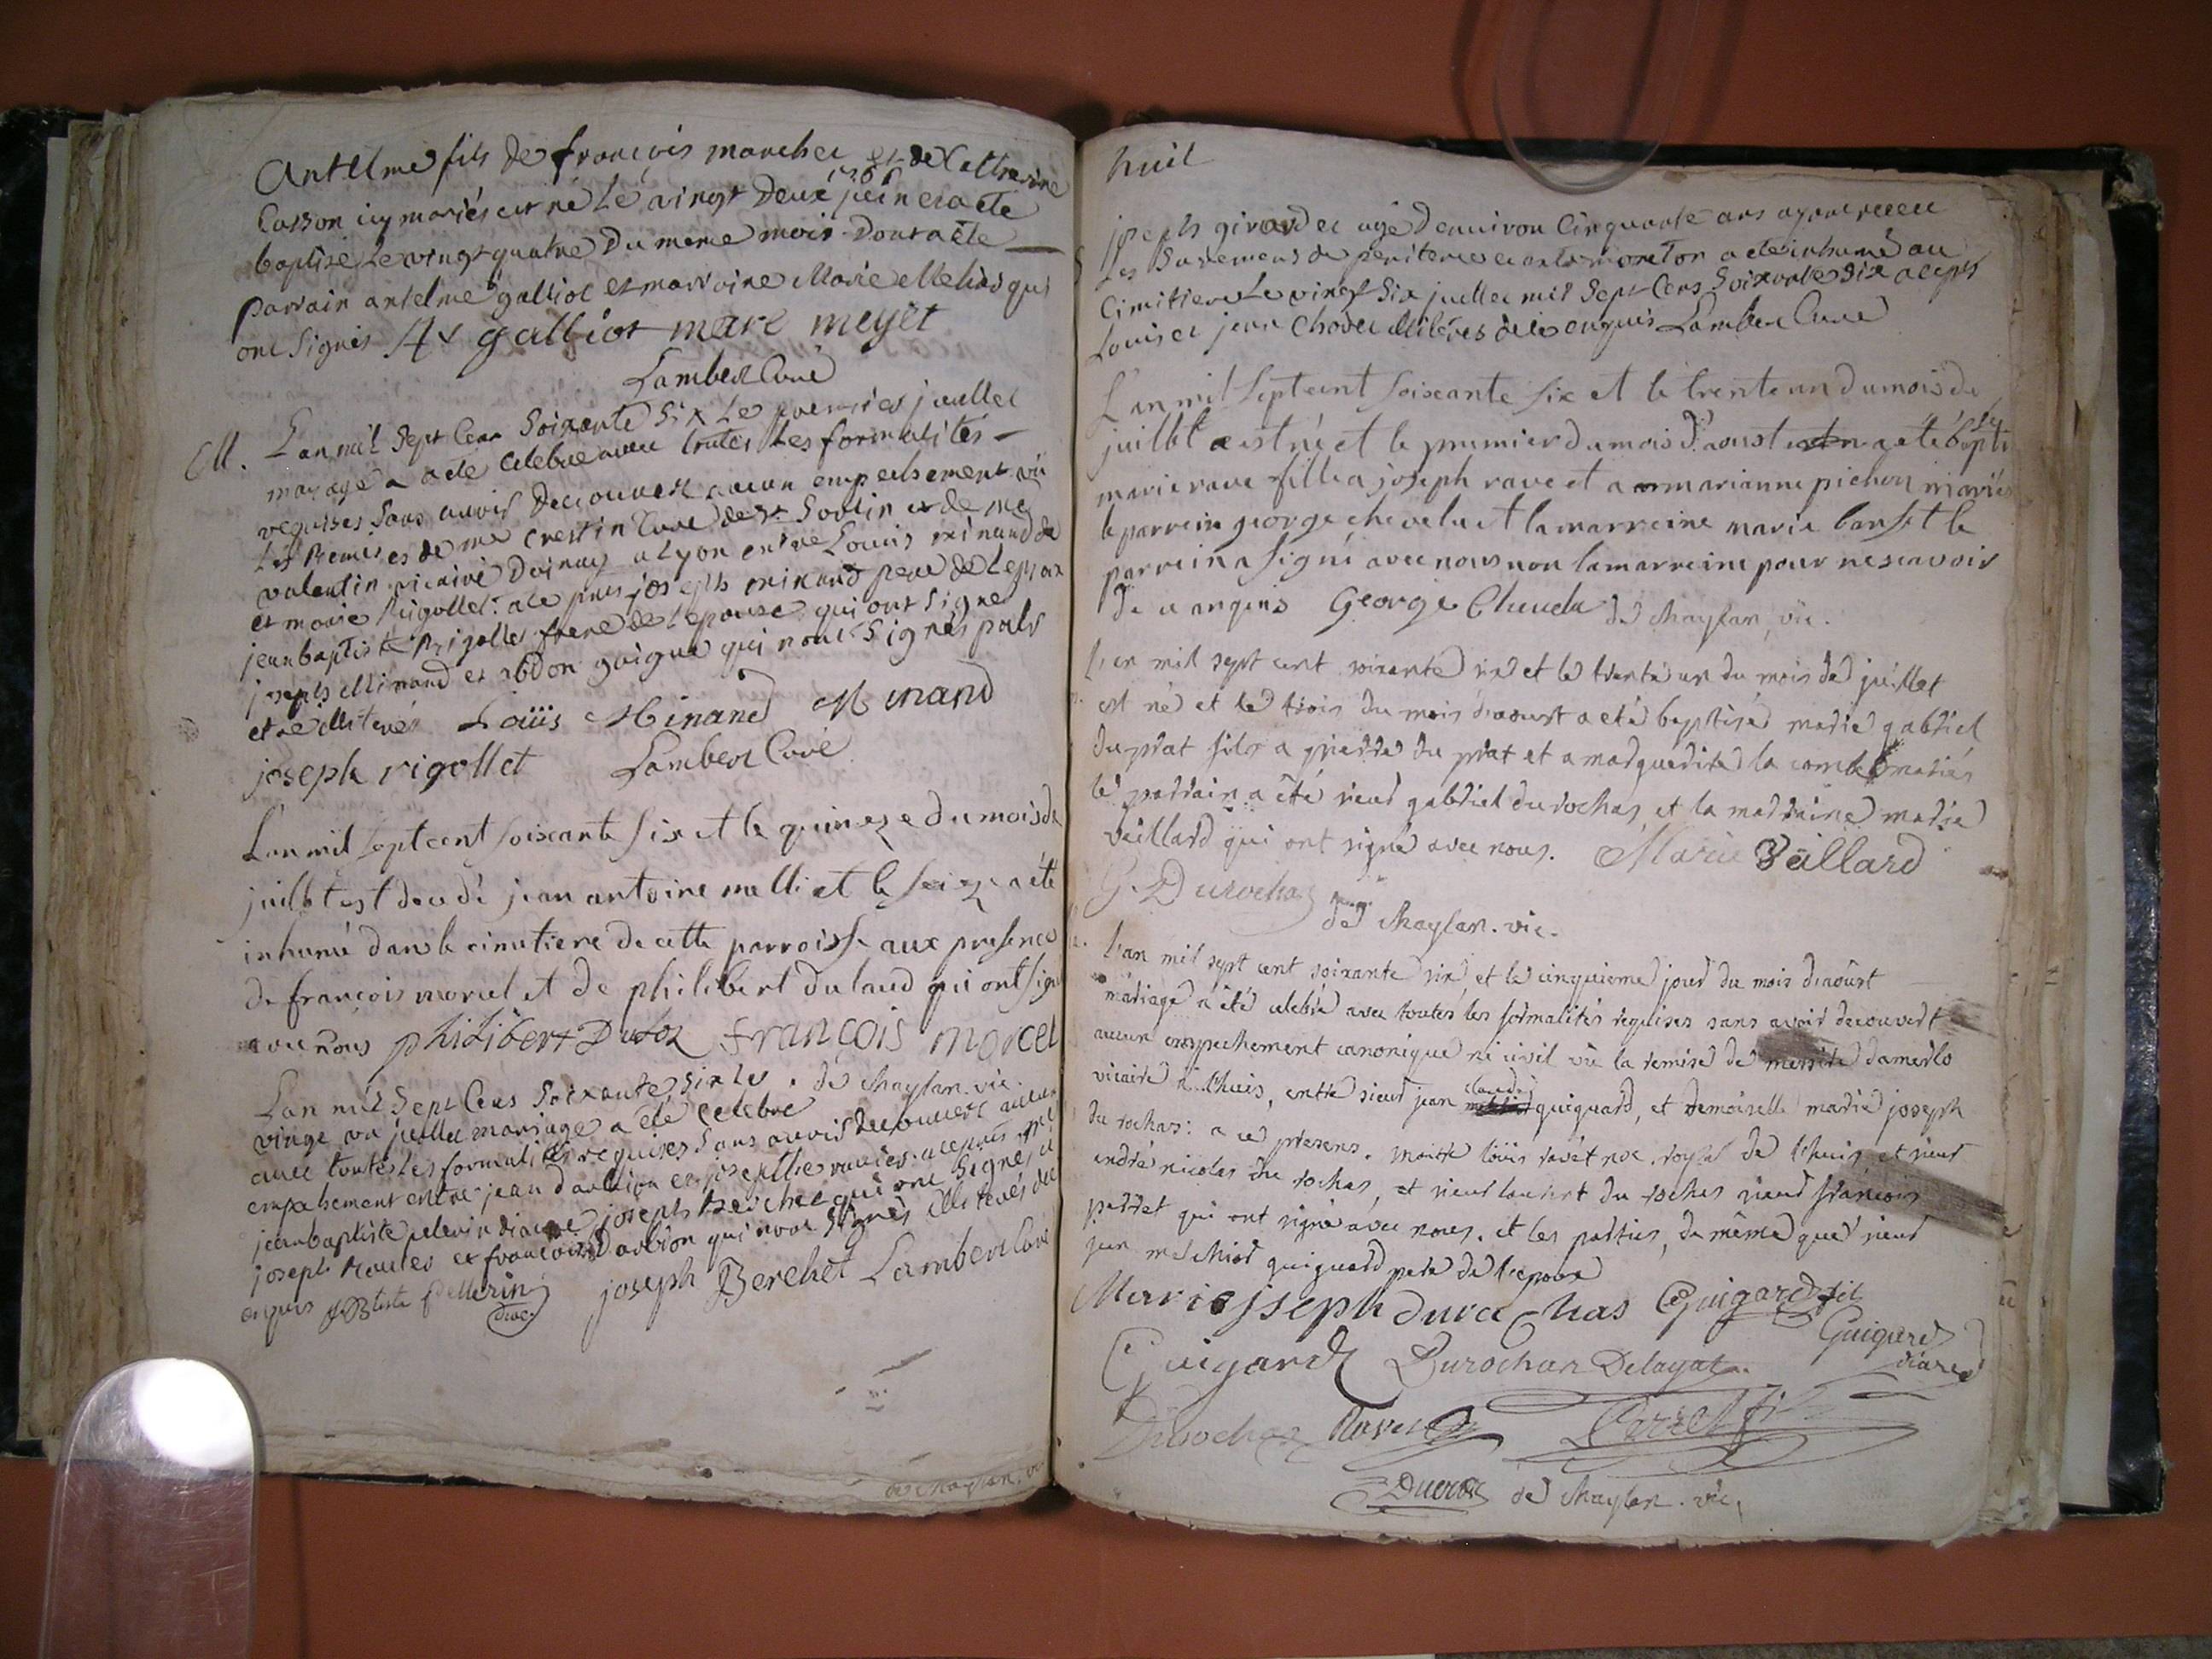 Antelme fils de françois marchet et de Catherine
1766
Casson icy mariés est né Le vingt deux juin et a ete
baptisé Le vingt quatre du meme mois dont a ete
parrain antelme galliot et marraine Marie qui
ont Signés At galliot marie meyet
Lambert Curé
M. L'an mil Sept Cens Soixante Six Le premier juillet
mariage a ete Celebré avec toutes Les formalités
requises Sans avoir decouvert aucun empechement vû
Les Remises de me Crestin Curé de St Sorlin et de me
valentin vicaire a Lyon entre Louis minand
et marie Rigollet. a ce pres joseph minand pere de Lepoux
jeanbaptiste Rigollet frere de Lepouse qui ont Signé
joseph Minand et abdon guigue qui n'ont Signés pour
et illiterés Loüis Minand Minand
joseph rigollet Lambert Curé
L'an mil septcent soixante six et le quineze du mois de
juillet est decedé jean antoine melli et le seize a été
inhumé dans le cimetiere de cette parroisse aux presences
de francois morcel et de philibert dulaud qui ont signé
avec nous philibert Duloz francois morcel
de Maylan. vic.
L'an mil Sept Cens Soixante Six Le
vingt un juillet mariage a été Celebré
avec toutes Les formalités requises Sans avoir decouvert aucun
empechement entre jean darbion et josephe ravier. a ce pres
jeanbaptiste pelerin diacre joseph Berchet qui ont Signés et
joseph et francois Darbion qui n'ont Signés illiterés de
enquis JBtiste Pellerin joseph Berchet Lambert Curé
diac.
de Maylan. vic
huit
joseph girardet agé denviron Cinquante ans ayant receu
Les Sacremens de penitence et a été inhumé au
Cimitiere Le vingt Six juillet mil Sept Cens Soixante Six a ce pres
Louis et jean Chodet illiterés de ce enquis Lambert Curé
L'an mil septcent soixante six et le trente un du mois de
juillet est né et le premier du mois d'aoust a eté baptisé
marie rave fille a joseph rave et a marianne pichon mariés
le parrein george chevelu et la marreine marie banset le
parrein a signé avec nous non la marreine pour ne scavoir
de ce enquis George Chevelu de Maylan, vic.
L'an mil sept cent soixante six et le trente un du mois de juillet
est né et le trois du mois d'aoust a eté baptisé marie gabriel
du prat fils a pierre du prat et a marguerite la combe mariés
le parrain a été sieur gabriel durochas et la marraine marie
vaillard qui ont signé avec nous. Marie Vaillard
G. Durochas de Maylan. vic.
L'an mil sept cent soixante six et le cinquieme jour du mois d'aoust
mariage a été celebré avec toutes les formalités requises sans avoir decouvert
aucun empechement canonique ni civil vû la remise de messire damerlo
vicaire a l'huis, entre sieur jean claude guiguard, et demoiselle marie joseph
du rochas: a ce presens. maitre loüis ravet roy de l'huis et sieur
andré nicolas du rochas, et sieur du rochas sieur francois
perret qui ont signé avec nous, et les parties, de même que sieur
jean melchior guiguard pere de l'epoux
Marie jseph durochas Guigard fil
Guigard Durochas Delagat Guigard diacre
Durochas Ravet Perret fils
de Maylan. vic.